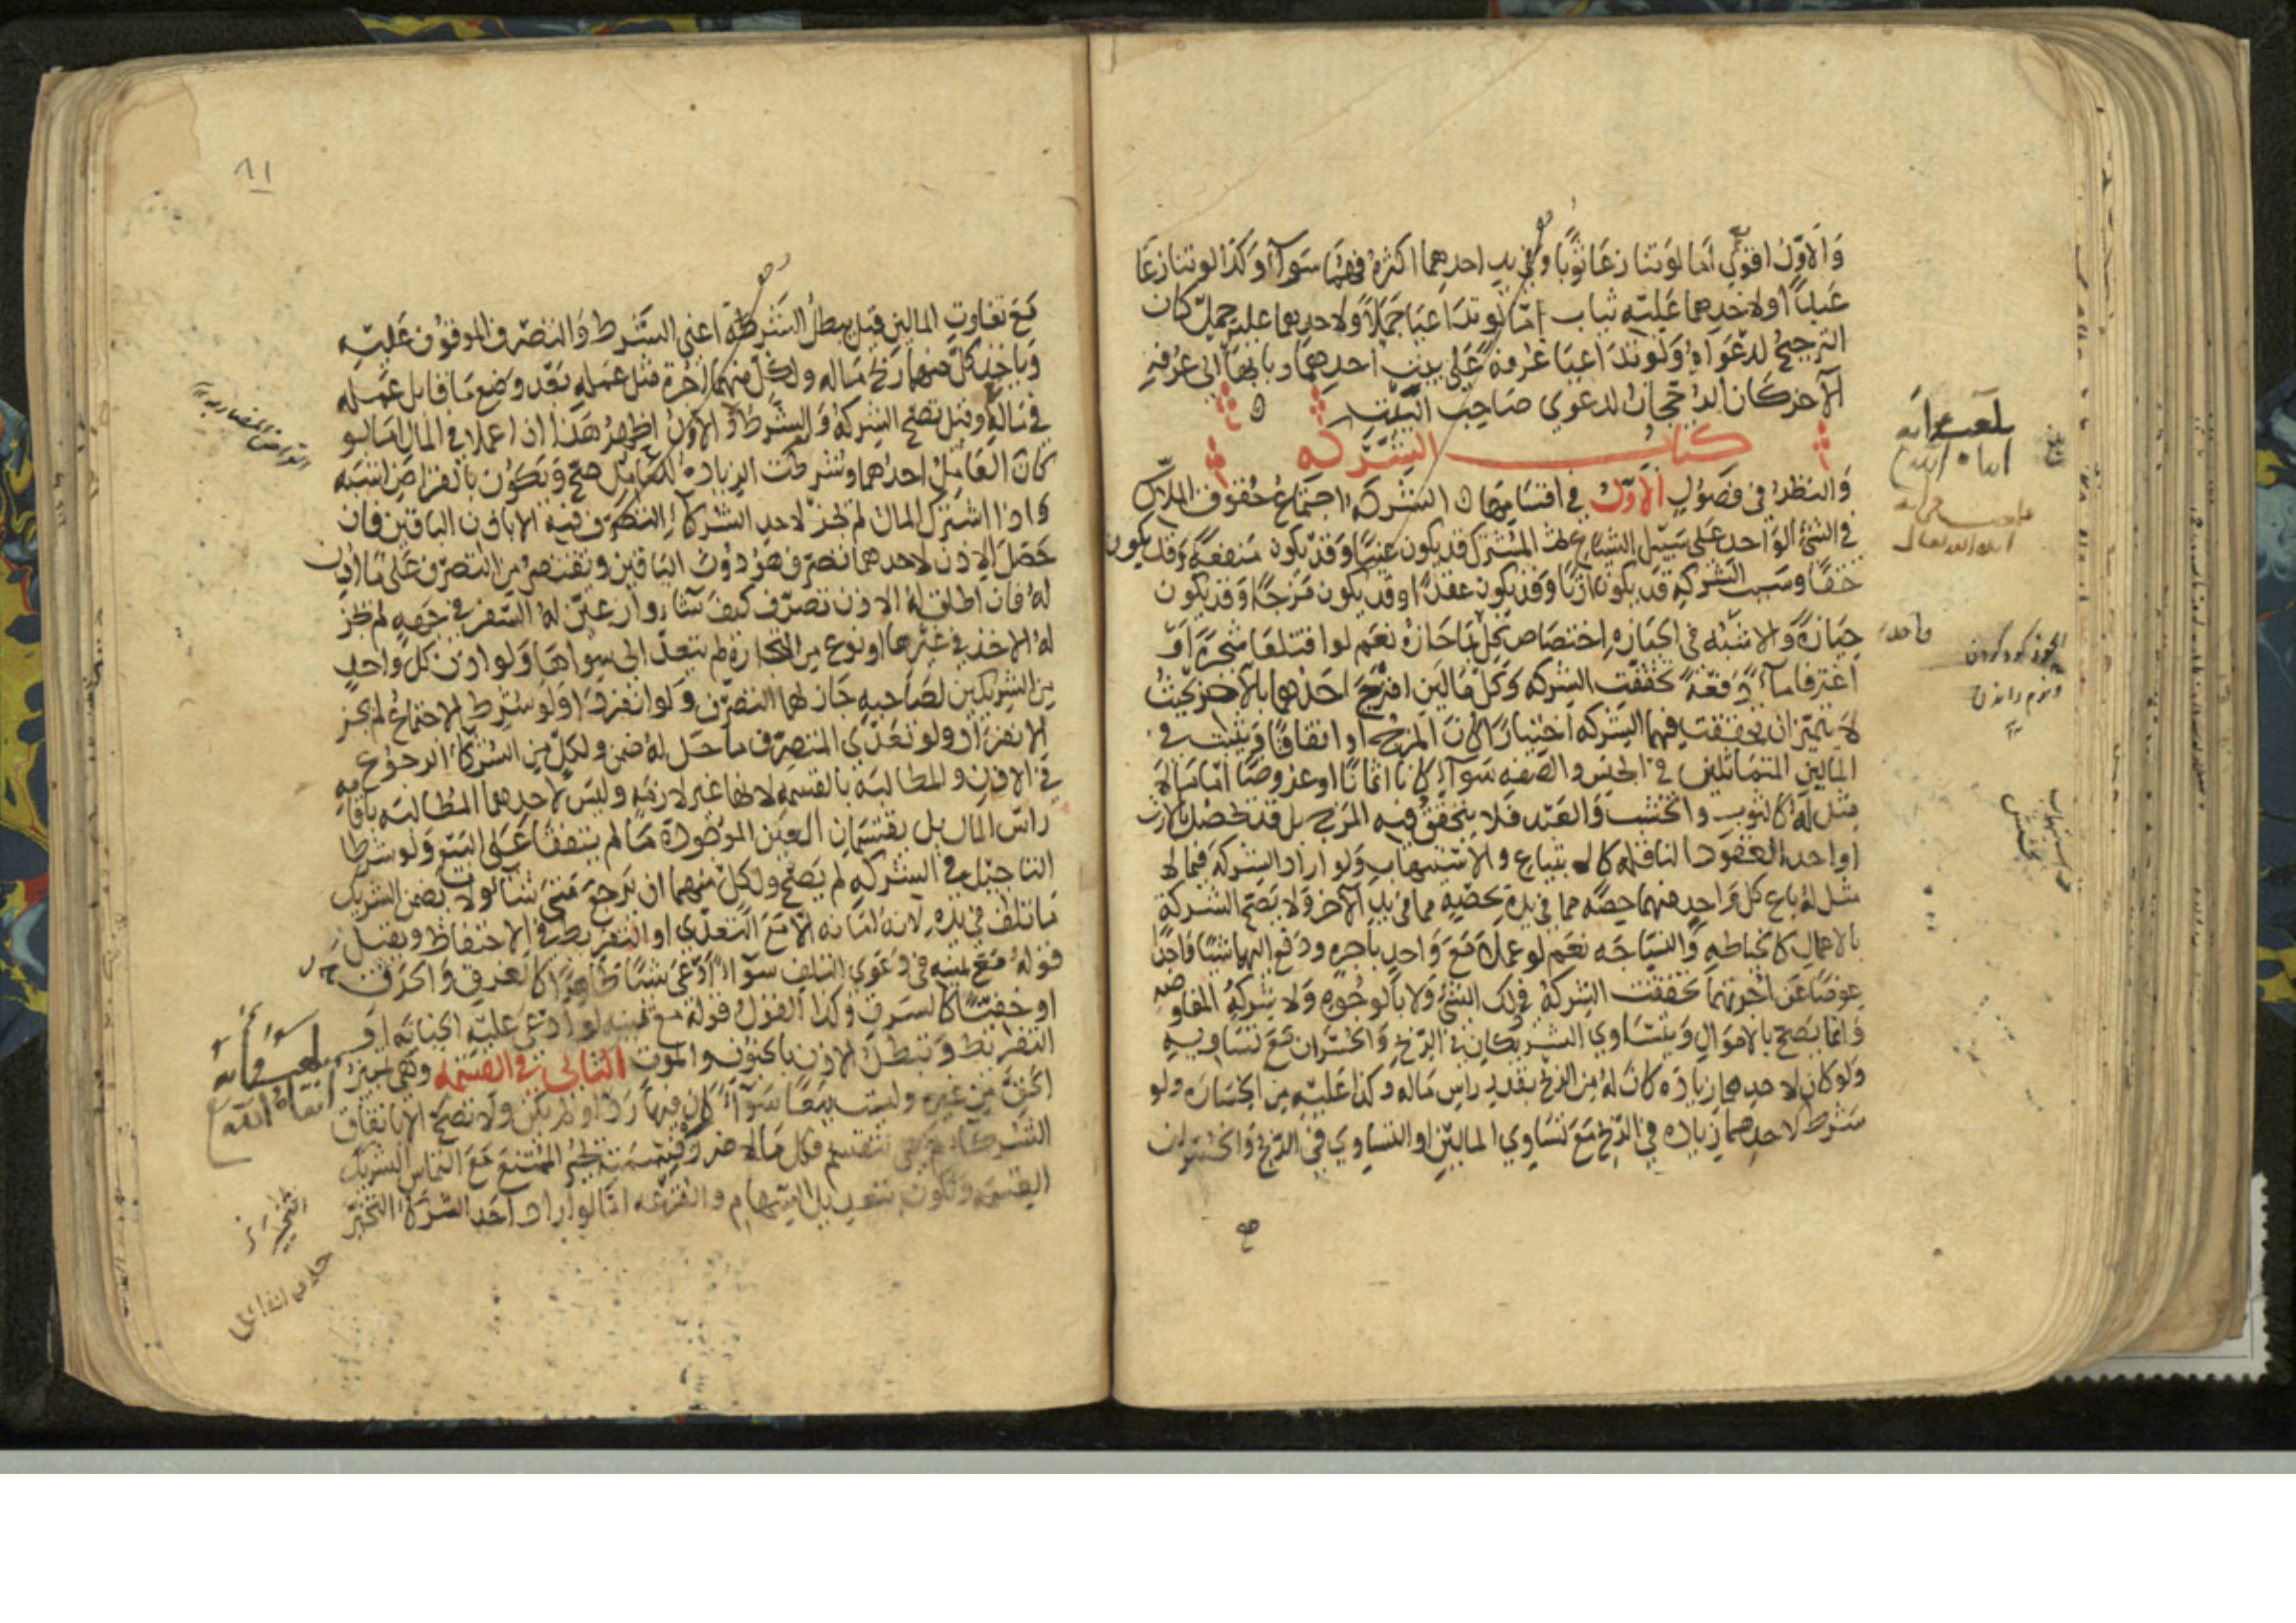 وَالاَوّلُ اقوي اَما لوَتنازعَا ثوبًا وَفي يد احدِهما اكثرهُ فهُمَا سَوآءٌ وَكذا لو تنازعَا
عَبدًا ولاحدِهما عَليْه ثياب امّا لو تدَاعيَا جَمَلًا ولاحدِهما عليه حِملٌ كان
الترجيحُ لدعْوَاهُ وَلو تدَاعيَا غرفةً عَلي بيت احدِهِما وبابُها اِلي غرفةِ
الآخر كان الرُجحانُ لدعوي صَاحِب البَيْت
كتاب الشركه
وَالنظرُ في فصُولٍ الاوّلُ في اقسَامِهَا الشركه اجتمَاعُ حُقوق المُلاّك
في الشيء الوَاحدِ على سَبيل الشياع ثم المشترك قد يكون عَينًا وَقد يكون منفعةً وَقد يكون
حَقًا وسَببُ الشركهِ قد يكون ارثًا وَقد يكون عَقدًا وقد يكون مَزجًا وَقد يكون
حِيَازةً وَالاشبه في الحيَازهِ اختصَاص كلٍّ بمَا حَازهُ نعَم لوا قتلعَا شجرَةً اَو
اغترفا مآءً دَفعَةً تحققت الشركه وَكلّ مَالَين امتزجَ احَدهما بالآخر بحَيثُ
لا يتميّزان تحققت فيهما الشركه اختيارًا كانَ المزجُ او اتفاقًا وَيثبت في
المالين المتمَاثلين في الجنس والصفه سَوآءٌ كانا اثمانًا او عروضًا امّا مَا لا
مثل له كالثوب والخشب وَالعَبْد فلا يتحققُ فيهِ المزج بل قد تحصُل بالارث
اواحد العُقود الناقله كالابتياع والاستيهاب وَلو اراد الشركه فيما لا
مثل لهُ باع كل وَاحِدٍ منهما حِصّه مما في يدهِ بحصّةٍ مما في يد الآخر وَلا يَصحّ الشركة
بالاعمال كالخياطهِ وَالنسَاجَه نعَم لو عملا مَعَ وَاحدٍ باجره ودفع اليهما شيئًا وَاحدًا
عِوضًا عَن اُجرَتهما تحققت الشركة في ذلك الشئ وَلا بالوجُوهِ وَلا شركة المفاوضه
وَانما يصحّ بالاموَالِ وَيتسَاوي الشريكان في الرّبح وَالخسران مَعَ تسَاويهِ
ولو كان لاحدِهما زيادَه كانَ لهُ مِن الربح بقدر راس مَاله وكذا عَليْهِ مِن الخسَارَه ولو
شرط لاحدِهما زياده في الرّبح مَعَ تسَاوي المالَين او التسَاوي في الرّبح وَالخسران
مع
بلغت قراءة
ايده الله
بلغت قراءة
ايده الله تعالى
واحدة
٨١
مَعَ تفاوتِ المالين قيل يبطل الشركه اعني الشرط وَالتصرّف الموقوف عَليْه
وَياخذ كلٌّ منهما ربحَ مَاله ولكل منهما اجرة مثل عمله بَعْد وضع مَا قابل عَمَله
في مَاله وقيل تصحّ الشركهُ وَالشرطُ وَالاوّلُ اظهرُ هَذا اذا عملا في المال امَا لو
كان العَامِلُ احدهما وشرطت الزيادهُ للعَامِل صحّ وَيكوُن بالقراض اشبَه
واذا اشترك المال لم يجز لاحد الشركآءِ التصرّف فيه الا باذن الباقين فان
حَصَل الاذن لاحدهما تصرّف هوَ دونَ الباقين وَيقتصرُ مِن التصرّف عَلى مَا اُذن
لهُ فان اطلق لهُ الاذن تصرّف كيفَ شآءَ وان عيّن لهُ السّفر في جهةٍ لم يجز
لهُ الاخذ في غيرها او نوع مِن التجارة لم يتعدّ الى سوَاها وَلو اذن كلُّ وَاحدٍ
مِن الشريكين لصَاحبهِ جَاز لهما التصرّف وَلو انفردا وَلوَ شرط الاجتماعُ لم يجز
الانفرَادُ ولو تعَدّي المتصرّف ما حدّ له ضمن ولكلٍّ مِن الشركآءِ الرجوُعُ
في الاذن وَالمطالبَه بالقسمه لانها غير لازمَه وليسَ لاحدهما المطالبَه باقامهِ
راس المال بل يقتسمان العين الموجُودة مَا لم يتفقا عَلى البَيْع وَلو شرطا
التاجيل في الشركهِ لم يَصحّ ولكلٍّ منهما ان يَرجعَ مَتىَ شآءَ ولا يضمن الشريك
ما تلف في يده لانهُ امَانه الا مَعَ التعَدّي او التفريط في الاحتفاظ ويقبل
قولهُ مَعَ يمينه في دَعوَي التلف سوآءٌ ادّعَى سَببًا ظاهرًا كالغرق وَالحرق
او خفيًّا كالسَرق وكذا القولُ قولهُ معَ يمينه لو ادعى عَليْه الخيانه اوَ
التفريط وَتبطلُ الاذن بالجنون والموت الثاني في القسمه وَهي تميز
الحق مِن غيره وليست بَيعًا سَوآءٌ كان فيها رَدّ او لم يكن ولا تصَحّ الا باتفاق
الشركآءِ ثم هي تنقسم فكل مَا لا ضررَ في قسمَته يجُبر الممتنعُ مَعَ التماس الشريك
القسمه وَتكون بتعديل السِّهام والقرعَه امّا لو اراد احَد الشركآءِ التخيّر
بلغت قراءة
ايده الله